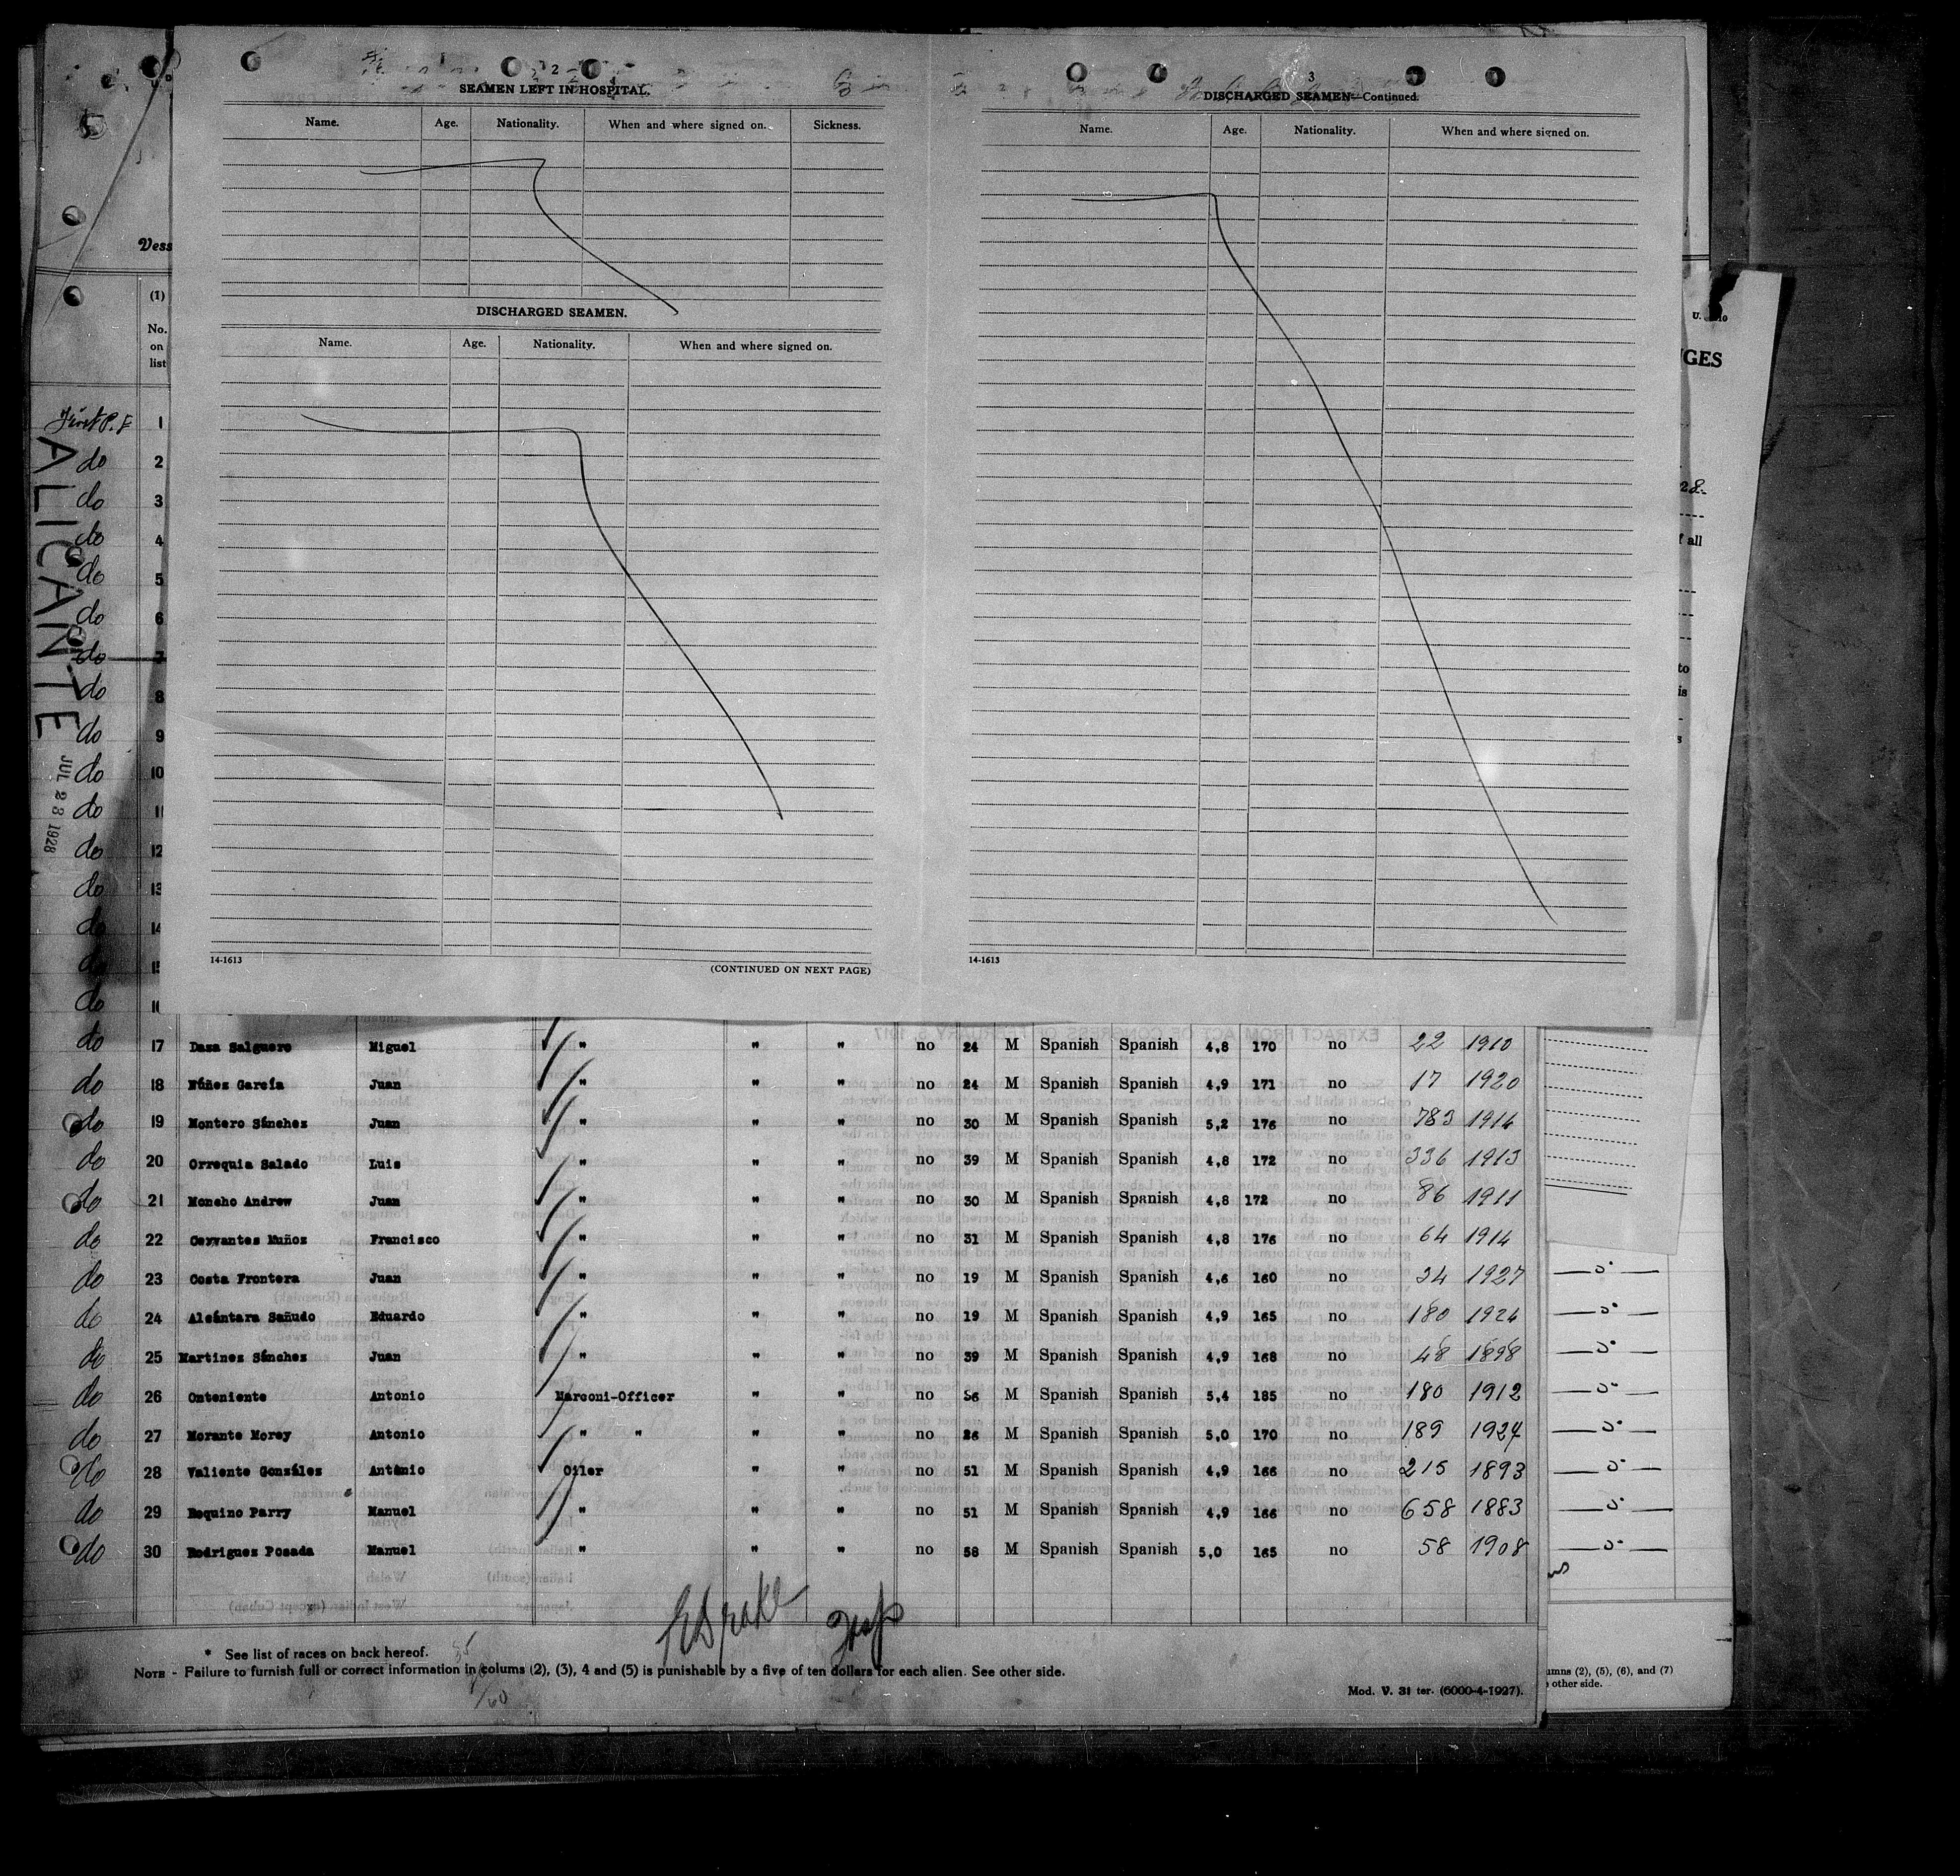 2
SEAMEN LEFT IN HOSPITAL.
Name. Age. Nationality. When and where signed on. Sickness.
DISCHARGED SEAMEN.
Name. Age. Nationality. When and where signed on.
14-1613
(CONTINUED ON NEXT PAGE)
3
DISCHARGED SEAMEN—Continued.
Name. Age. Nationality. When and where signed on.
14-1613
5
Vess
(1)
No.
on
list
ALICANTE
JUL 28 1928
First P. E 1
do 2
do 3
do 4
do 5
do 6
do 7
do 8
do 9
do 10
do 11
do 12
do 13
do 14
do 1
do 1
do 17 Daza Salguero Miguel " " " no 24 M Spanish Spanish 4,8 170 no 22 1910
do 18 Núñez García Juan " " " no 24 M Spanish Spanish 4,9 171 no 17 1920
do 19 Montero Sánchez Juan " " " no 30 M Spanish Spanish 5,2 176 no 783 1914
do 20 Orrequia Salado Luis " " " no 39 M Spanish Spanish 4,8 172 no 336 1913
do 21 Moncho Andrew Juan " " " no 30 M Spanish Spanish 4,8 172 no 86 1911
do 22 Cervantes Muñoz Francisco " " " no 31 M Spanish Spanish 4,8 176 no 64 1914
do 23 Costa Frontera Juan " " " no 19 M Spanish Spanish 4,6 160 no 34 1927
do 24 Alcántara Sañudo Eduardo " " " no 19 M Spanish Spanish 4,9 165 no 180 1924
do 25 Martinez Sánchez Juan " " " no 39 M Spanish Spanish 4,9 168 no 48 1898
do 26 Onteniente Antonio Marconi-Officer " " no 36 M Spanish Spanish 5,4 185 no 180 1912
do 27 Morante Morey Antonio " " " " no 26 M Spanish Spanish 5,0 170 no 189 1924
do 28 Valiente Gonzáles António Oiler " " no 51 M Spanish Spanish 4,9 166 no 215 1893
do 29 Requino Parry Manuel " " " no 51 M Spanish Spanish 4,9 166 no 658 1883
do 30 Rodriguez Posada Manuel " " " no 58 M Spanish Spanish 5,0 165 no 58 1908
* See list of races on back hereof.
NOTE - Failure to furnish full or correct information in colums (2), (3), 4 and (5) is punishable by a five of ten dollars for each alien. See other side.
Mod. V. 31 ter. (6000-4-1927).
GES
28
all
to
is
umns (2), (5), (6), and (7)
other side.